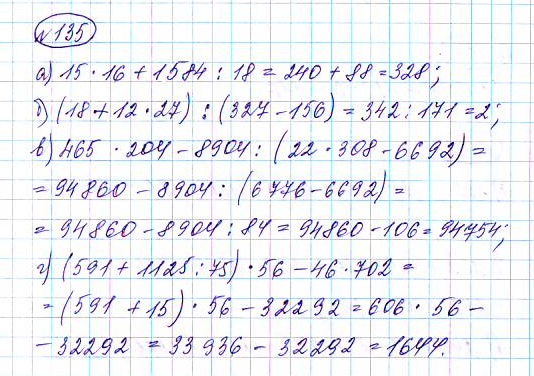 №135
а) 15 · 16 + 1584 : 18 = 240 + 88 = 328;
б) (18 + 12 · 27) : (327 - 156) = 342 : 171 = 2;
в) 465 · 204 - 8904 : (22 · 308 - 6692) =
= 94860 - 8904 : (6776 - 6692) =
= 94860 - 8904 : 84 = 94860 - 106 = 94754;
г) (591 + 1125 : 75) · 56 - 46 · 702 =
= (591 + 15) · 56 - 32292 = 606 · 56 -
- 32292 = 33936 - 32292 = 1644.